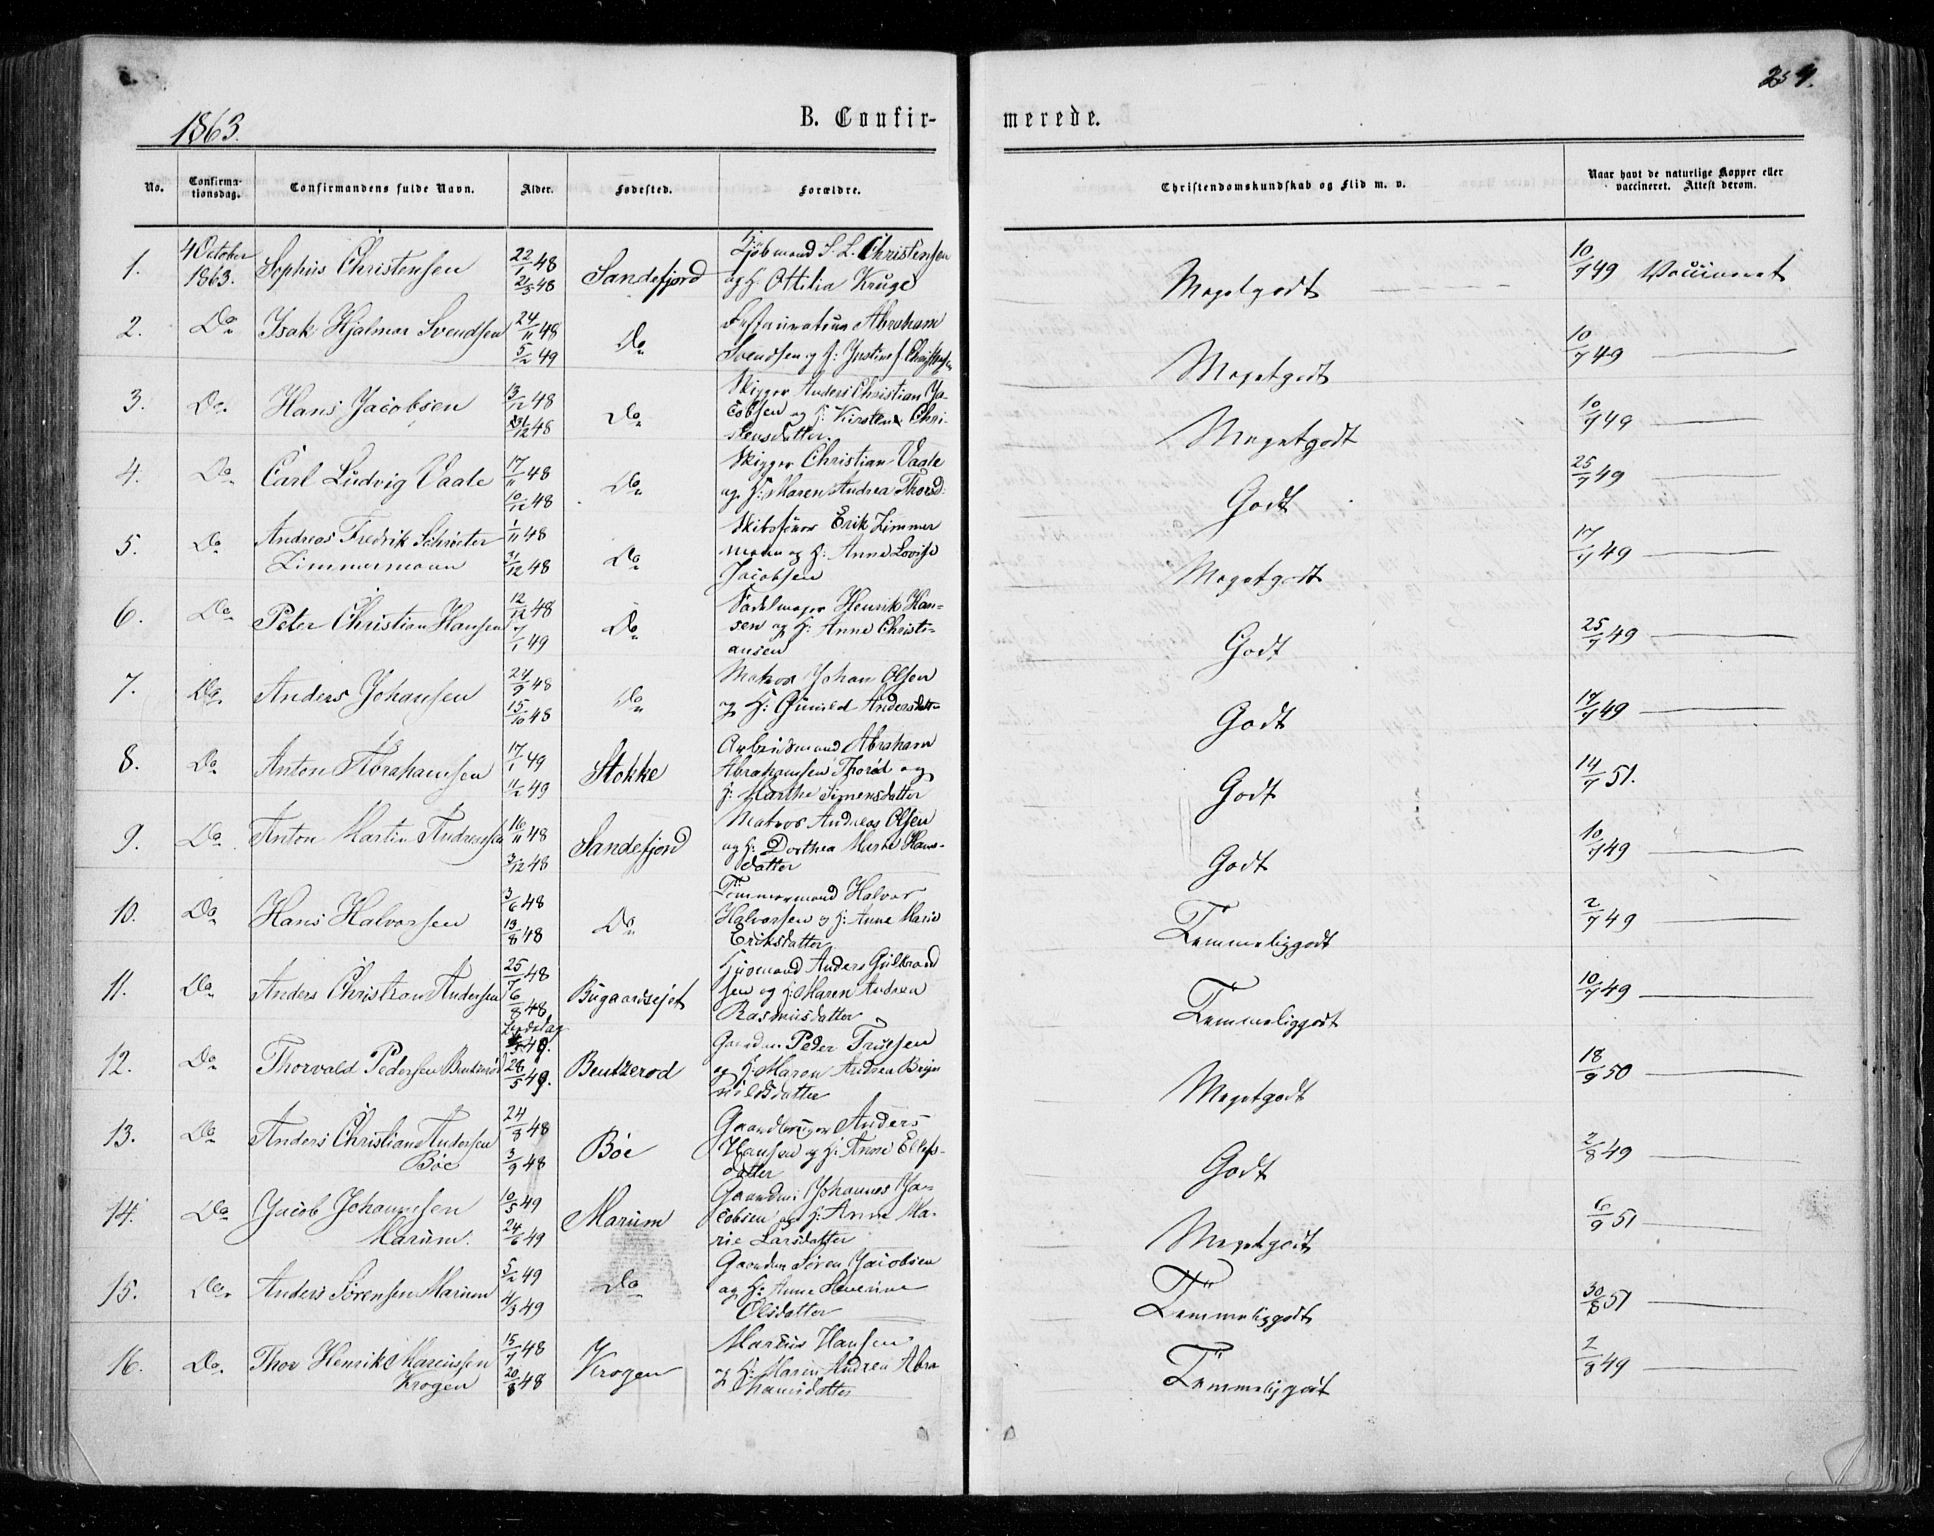 259.
1863.
B. Confirmerede.
No. Confirmationsdag. Confirmandens fulde Navn. Alder. Fødested. Forældre. Christendomskundskab og Flid m. v. Naar havt de naturlige Kopper eller vaccineret. Attest derom.
1. 4 October 1863. Sophus Christensen 22/1 48 21/5 48 Sandefjord Kjøbmand S. L. Christensen og H: Ottilia Kruge Megetgodt 10/7 49 Vaccineret
2. Do Isak Hjalmar Svendsen 24/11 48 5/2 49 Do Abraham Svendsen og H: Megetgodt 10/7 49
3. Do. Hans Jacobsen 13/12 48 /12 48 Do Skipper Anders Christian Jacobsen og H: Kirstene Christensdatter Megetgodt 10/7 49
4. Do Carl Ludvig Vaale 17/11 48 10/12 48 Do Skipper Christian Vaale og H: Maren Andrea Thorsd: Godt 25/7 49
5. Do Andreas Fredrik Schrøeter Zimmermann 1/11 48 31/12 48 Do Erik Zimmermann og H: Anne Lovise Jacobsen Megetgodt 17/7 49
6. Do Peter Christian Hansen 12/12 48 7/1 49 Do Sadelmager Henrik Hansen og H: Anne Christiansen Godt 25/7 49
7. Do. Anders Johansen 24/9 48 15/10 48 Do Matros Johan Olsen og H: Gunild Andersdatt: Godt 17/7 49
8. Do Anton Abrahamsen 17/1 49 11/2 49 Stokke Arbeidsmand Abraham Abrahamsen Thorød og H: Marthe Simensdatter Godt 14/7 51.
9. Do. Anton Martin Andreassen 16/11 48 3/12 48 Sandefjord Matros Andreas Olsen og H: Dorthea Marte Hansdatter Godt 10/7 49
10. Do Hans Halvorsen 3/6 48 13/8 48 Do Tømmermand Halvor Halvorsen og H: Anne Marie Eriksdatter Temmeliggodt 2/7 49
11. Do Anders Christian Andersen 25/7 48 6/8 48 Bugaardsejet Anders Gulbrandsen og H: Maren Andrea Rasmusdatter Temmeliggodt 10/7 49
12. Do Thorvald Pedersen Bentzerød 49. 28/5 49. Bentzerød Gaardm: Peder Truelsen og H: Maren Andrea Temmeliggodt 18/9 50
13. Do Anders Christian Andersen Bøe 24/8 48 3/9 48 Bøe Gaardbruger Anders Hansen og H: Anne Ellefsdatter Godt 2/8 49
14. Do Jacob Johannesen Marum. 10/5 49 24/6 49 Marum Gaardm: Johannes Jacobsen og H: Anne Marie Larsdatter Megetgodt 6/9 51
15. Do. Anders Sørensen Marum 5/2 49 4/3 49 Do Gaardm Søren Jacobsen og H: Anne Severine Olsdatter Temmeliggodt 30/8 51
16. Do. Thor Henrik Marcussen Krogen 15/7 48 20/8 48 Krogen Marcus Hansen og H: Maren Andrea Abrahamsdatter Temmeliggodt 2/8 49